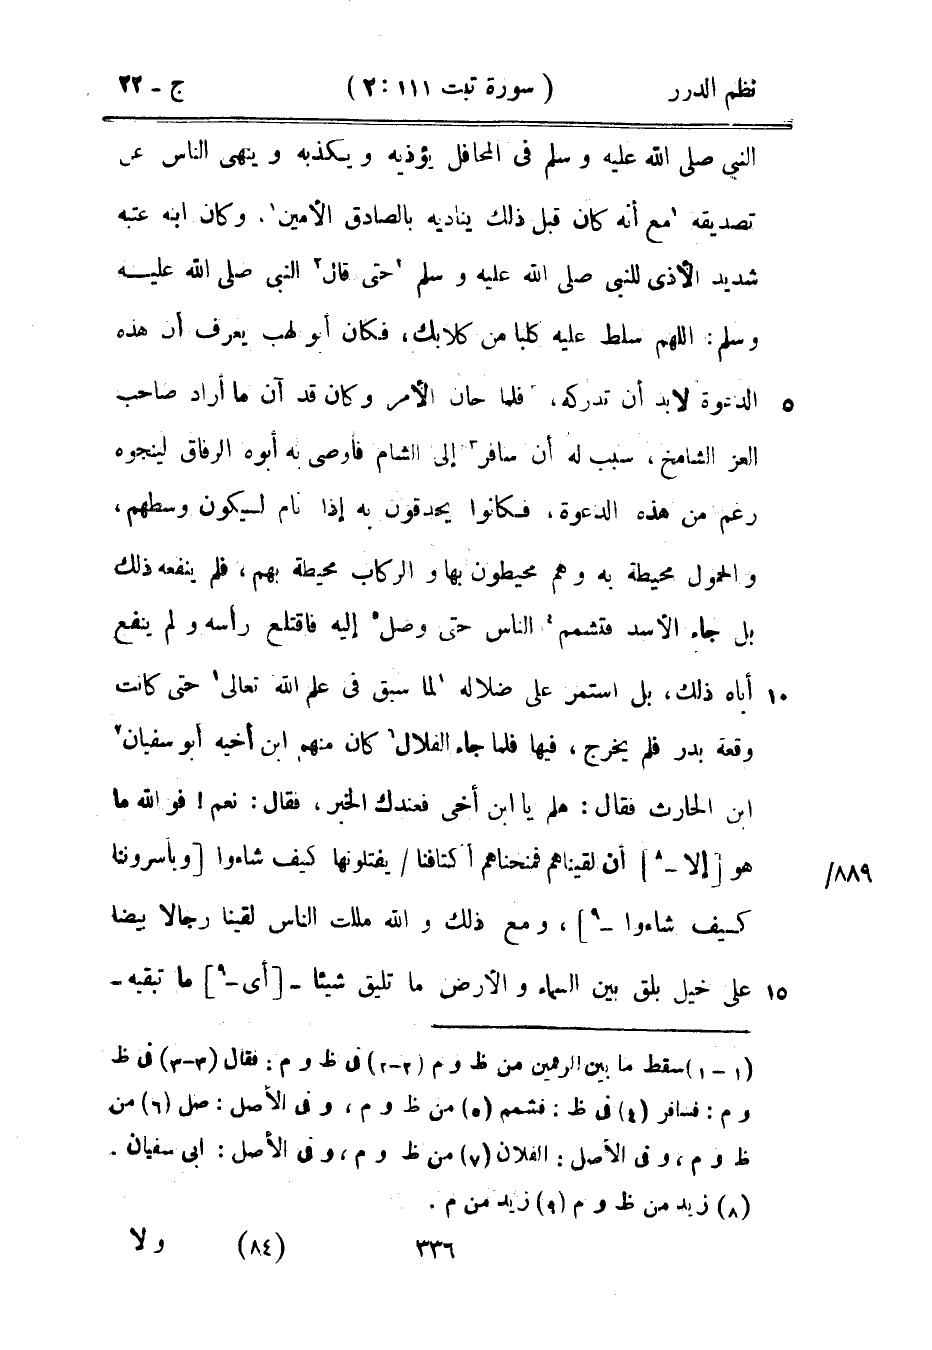 نظم الدرر ( سورة تبت ١١١ : ٢ ) ج - ٢٢
النبي صلى الله عليه و سلم فى المحافل يؤذيه و يكذبه و ينهى الناس عن
تصديقه ¹مع أنه كان قبل ذلك يناديه بالصادق الأمين¹. وكان ابنه عتبه
شديد الأذى للنبي صلى الله عليه و سلم ²حتى قال² النبي صلى الله عليه
و سلم : اللهم سلط عليه كلبا من كلابك، فكان أبو لهب يعرف أن هذه
الدعوة لابد أن تدركه، ³فلما حان الأمر وكان قد آن ما أراد صاحب ٥
العز الشامخ، سبب له أن سافر³ إلى الشام فأوصى به أبوه الرفاق لينجوه
زعم من هذه الدعوة، فكانوا يحدقون به إذا نام ليكون وسطهم،
و الحمول محيطة به و هم محيطون بها و الركاب محيطة بهم، فلم ينفعه ذلك
بل جاء الأسد فتشمم⁴ الناس حتى وصل⁵ إليه فاقتلع رأسه و لم ينفع
أباه ذلك، بل استمر على ضلاله ¹لما سبق فى علم الله تعالى¹ حتى كانت ١٠
وقعة بدر فلم يخرج، فيها فلما جاء الفلال⁶ كان منهم ابن أخيه أبو سفيان⁷
ابن الحارث فقال : هلم يا ابن أخى فعندك الخبر، فقال : نعم ! فو الله ما
هو [إلا -⁸] أن لقيناهم فمنحناهم أكتافنا / يقتلونها كيف شاءوا [ويأسروننا /٨٨٩
كيف شاءوا -⁹]، و مع ذلك و الله مالمت الناس لقينا رجالا بيضا
على خيل بلق بين السماء و الأرض ما تليق شيئا - [أى -⁹] ما تبقيه - ١٥
(١-١) سقط ما بين الرقمين من ظ و م (٢-٢) فى ظ و م : فقال (٣-٣) فى ظ
و م : فسافر (٤) فى ظ : فشمم (٥) من ظ و م، و فى الأصل : صل (٦) من
ظ و م، و فى الأصل : الفلان (٧) من ظ و م، و فى الأصل : ابى سفيان .
(٨) زيد من ظ و م (٩) زيد من م .
٣٣٦ (٨٤) و لا